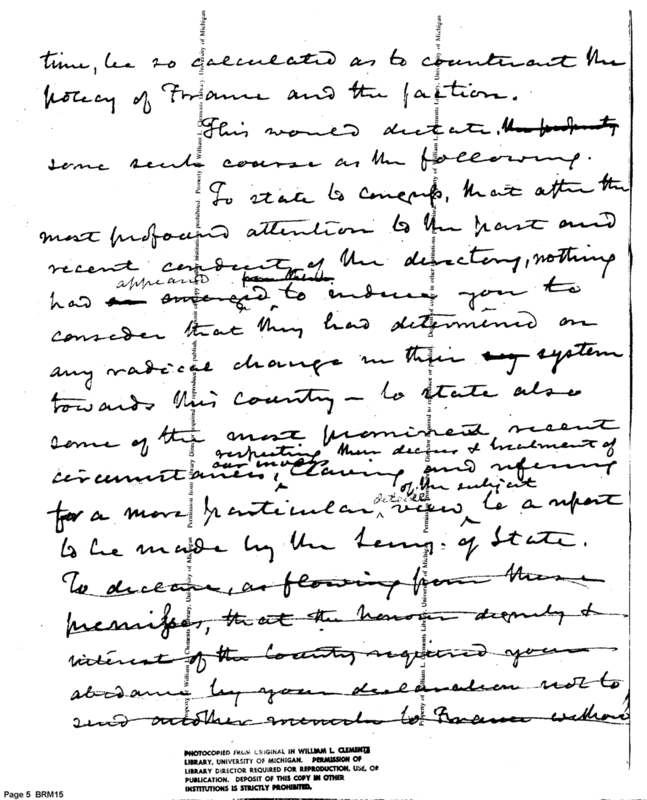 time, be so calculated as to counteract the
policy of France and the faction.
This would dictate,
some such course as the following.
To state to congress, that after the
most profound attention to the past and
recent conduct of the directory, nothing
appeared
had emerged to induce you to
consider that they had determined on
any radical change in their system
towards this country – to state also
some of the most prominent recent
respecting their decrees & treatment of
our
circumstances, leaving and refering
of the subject
for a more particular detailed view to a report
to be made by the Secry. of State.
To declare, as flowing from these
premisses, that the honour dignity &
interest of the Country required your
abidance by your declaration not to
send another minister to France without
Property of William L. Clements Library, University of Michigan
PHOTOCOPIED FROM ORIGINAL IN WILLIAM L. CLEMENTS
LIBRARY, UNIVERSITY OF MICHIGAN. PERMISSION OF
LIBRARY DIRECTOR REQUIRED FOR REPRODUCTION, USE, OR
PUBLICATION. DEPOSIT OF THIS COPY IN OTHER
INSTITUTIONS IS STRICTLY PROHIBITED.
Page 5 BRM15